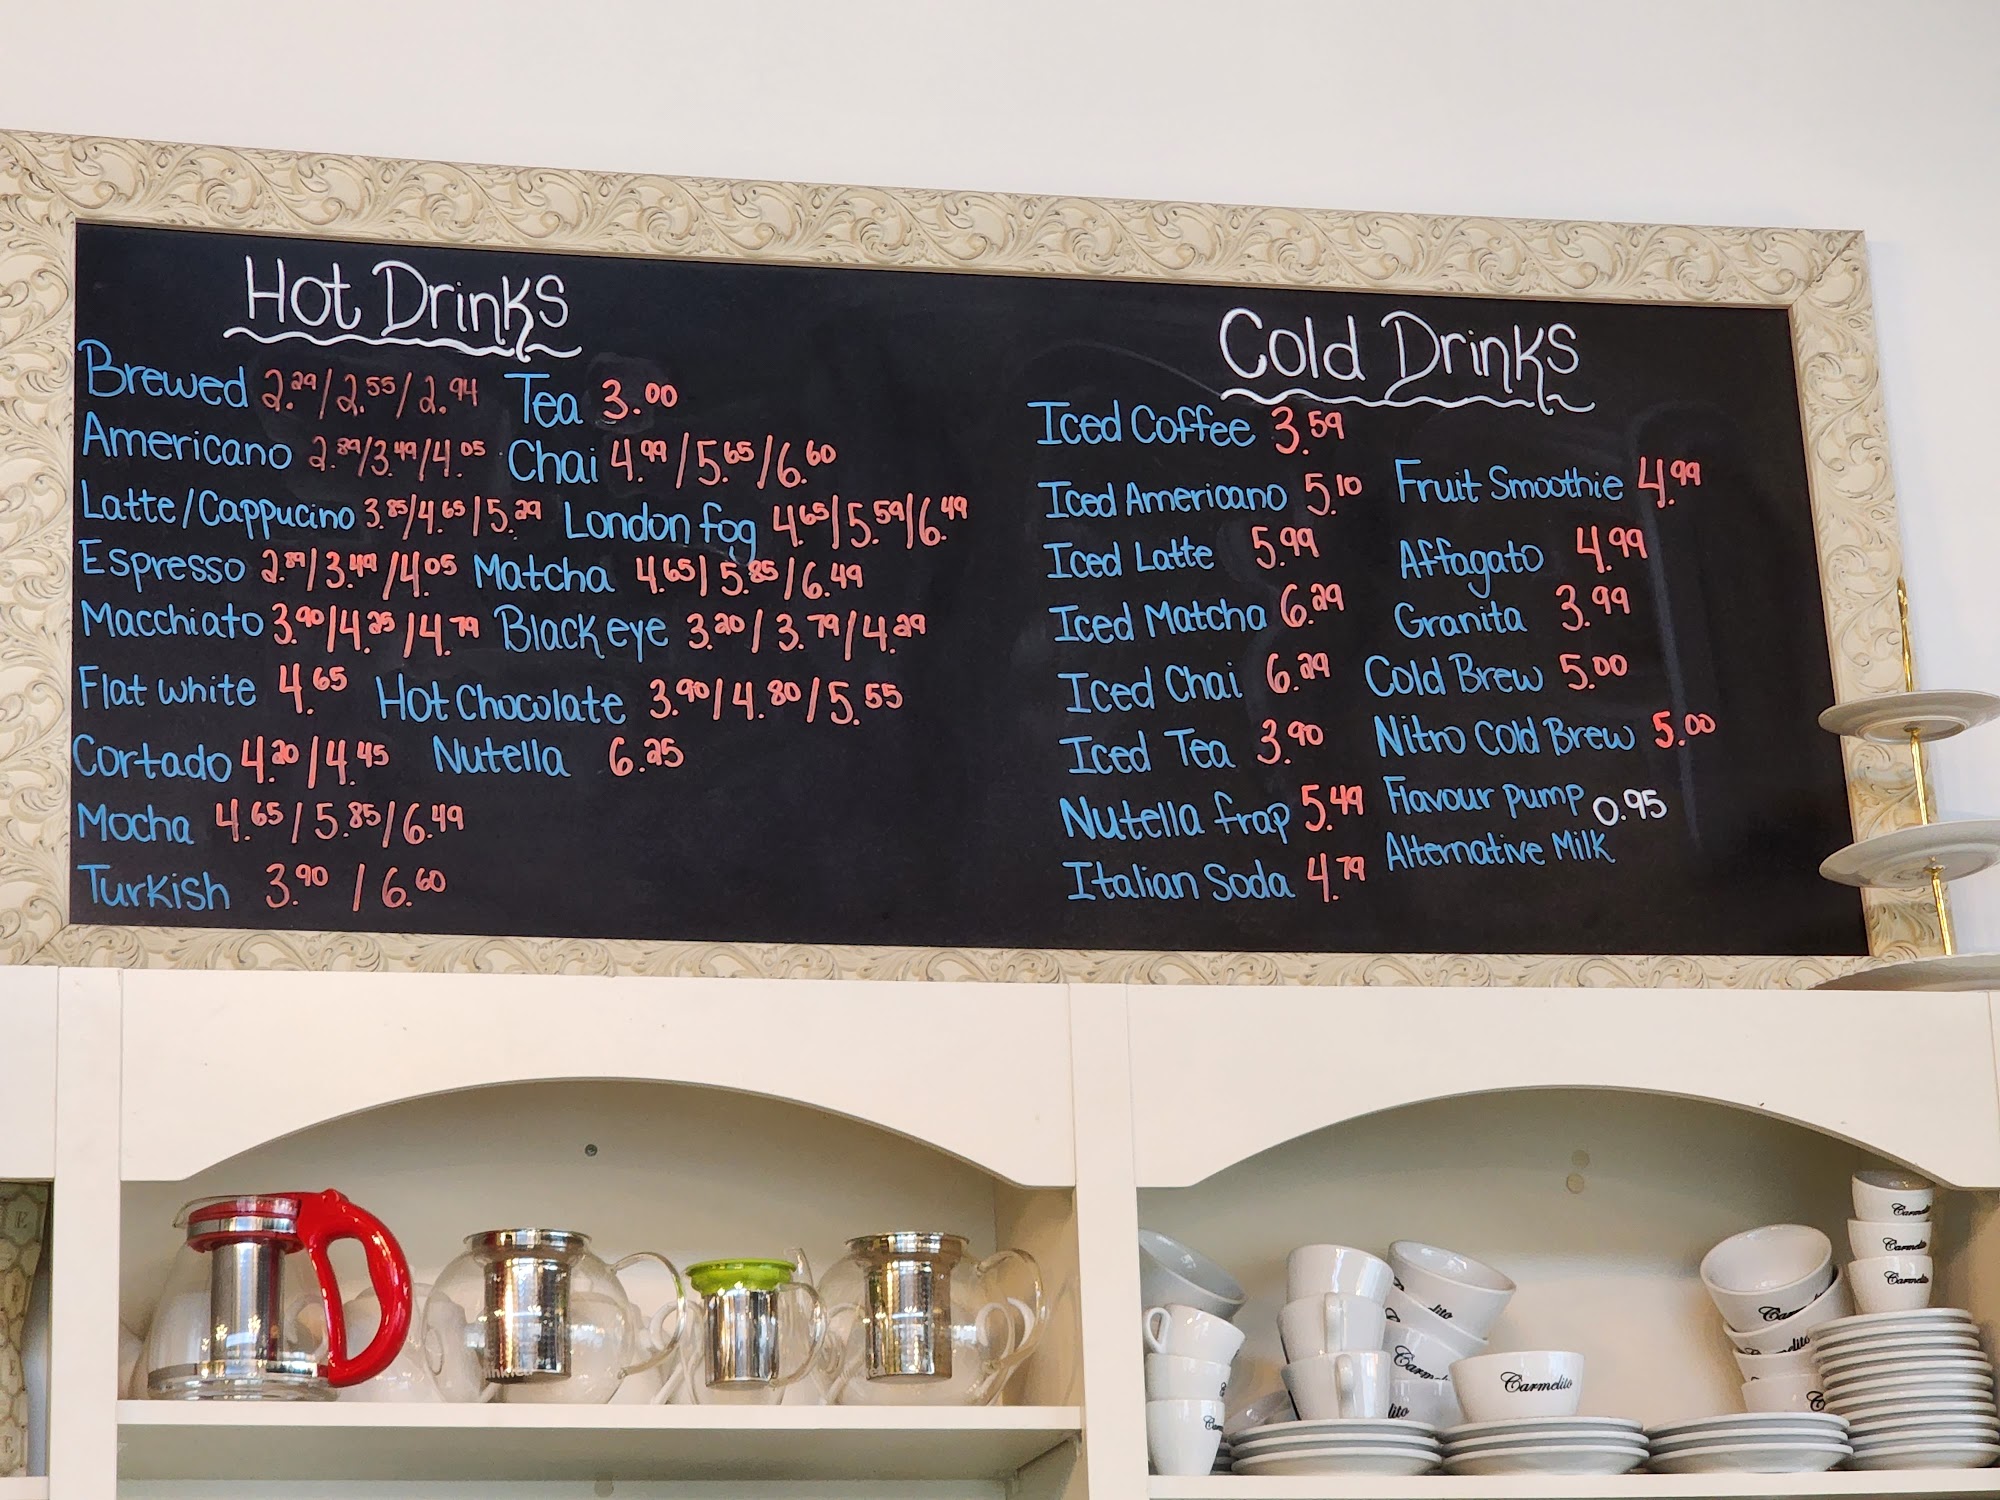 Hot Drinks
Brewed 2.29/2.55/2.94 Tea 3.00
Americano 2.89/3.49/4.05 Chai 4.99/5.65/6.60
Latte/Cappucino 3.85/4.65/5.29 London fog 4.65/5.59/6.49
Espresso 2.89/3.49/4.05 Matcha 4.65/5.85/6.49
Macchiato 3.90/4.25/4.79 Black eye 3.20/3.79/4.29
Flat white 4.65 Hot Chocolate 3.90/4.80/5.55
Cortado 4.20/4.45 Nutella 6.25
Mocha 4.65/5.85/6.49
Turkish 3.90/6.60
Cold Drinks
Iced Coffee 3.59
Iced Americano 5.10 Fruit Smoothie 4.99
Iced Latte 5.99 Affagato 4.99
Iced Matcha 6.29 Granita 3.99
Iced Chai 6.29 Cold Brew 5.00
Iced Tea 3.90 Nitro Cold Brew 5.00
Nutella frap 5.49 Flavour pump 0.95
Italian Soda 4.79 Alternative Milk
Carmelito